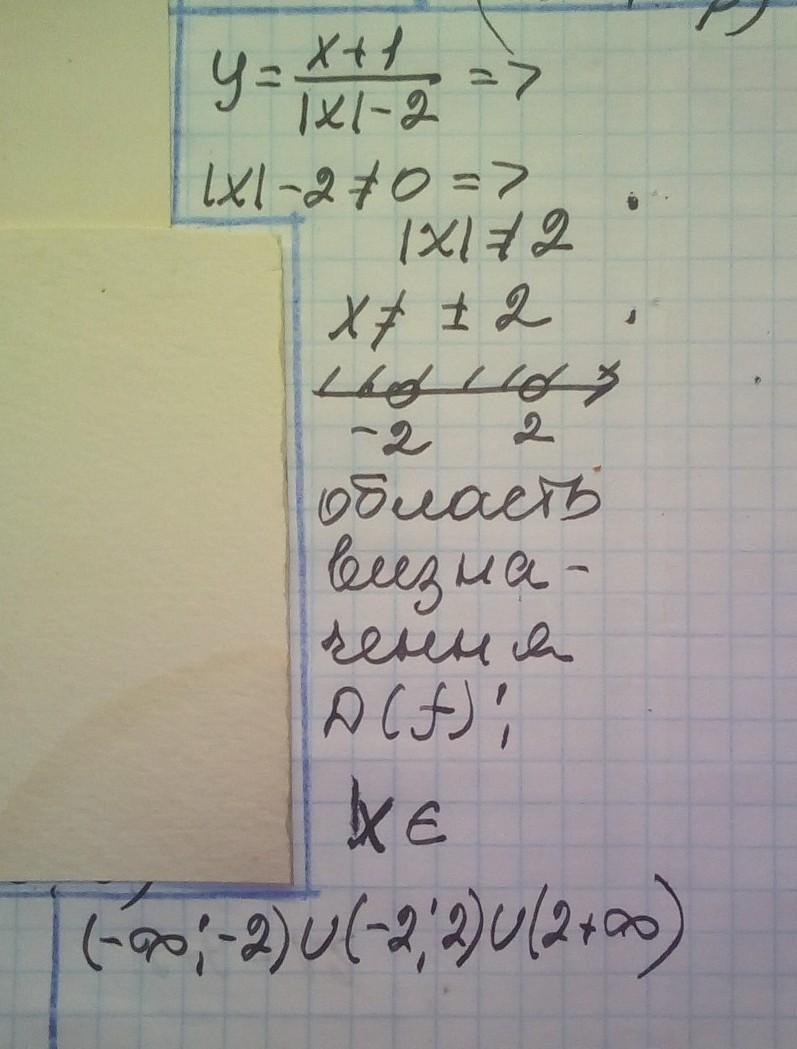 y = x+1 / |x|-2 =>
|x| - 2 ≠ 0 =>
|x| ≠ 2
x ≠ ± 2
x
-2 2
область
визна-
чення
D(f);
x ∈
(-∞;-2)∪(-2;2)∪(2+∞)